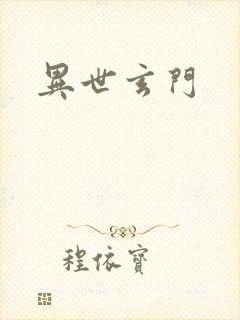 異世玄門
程依寶